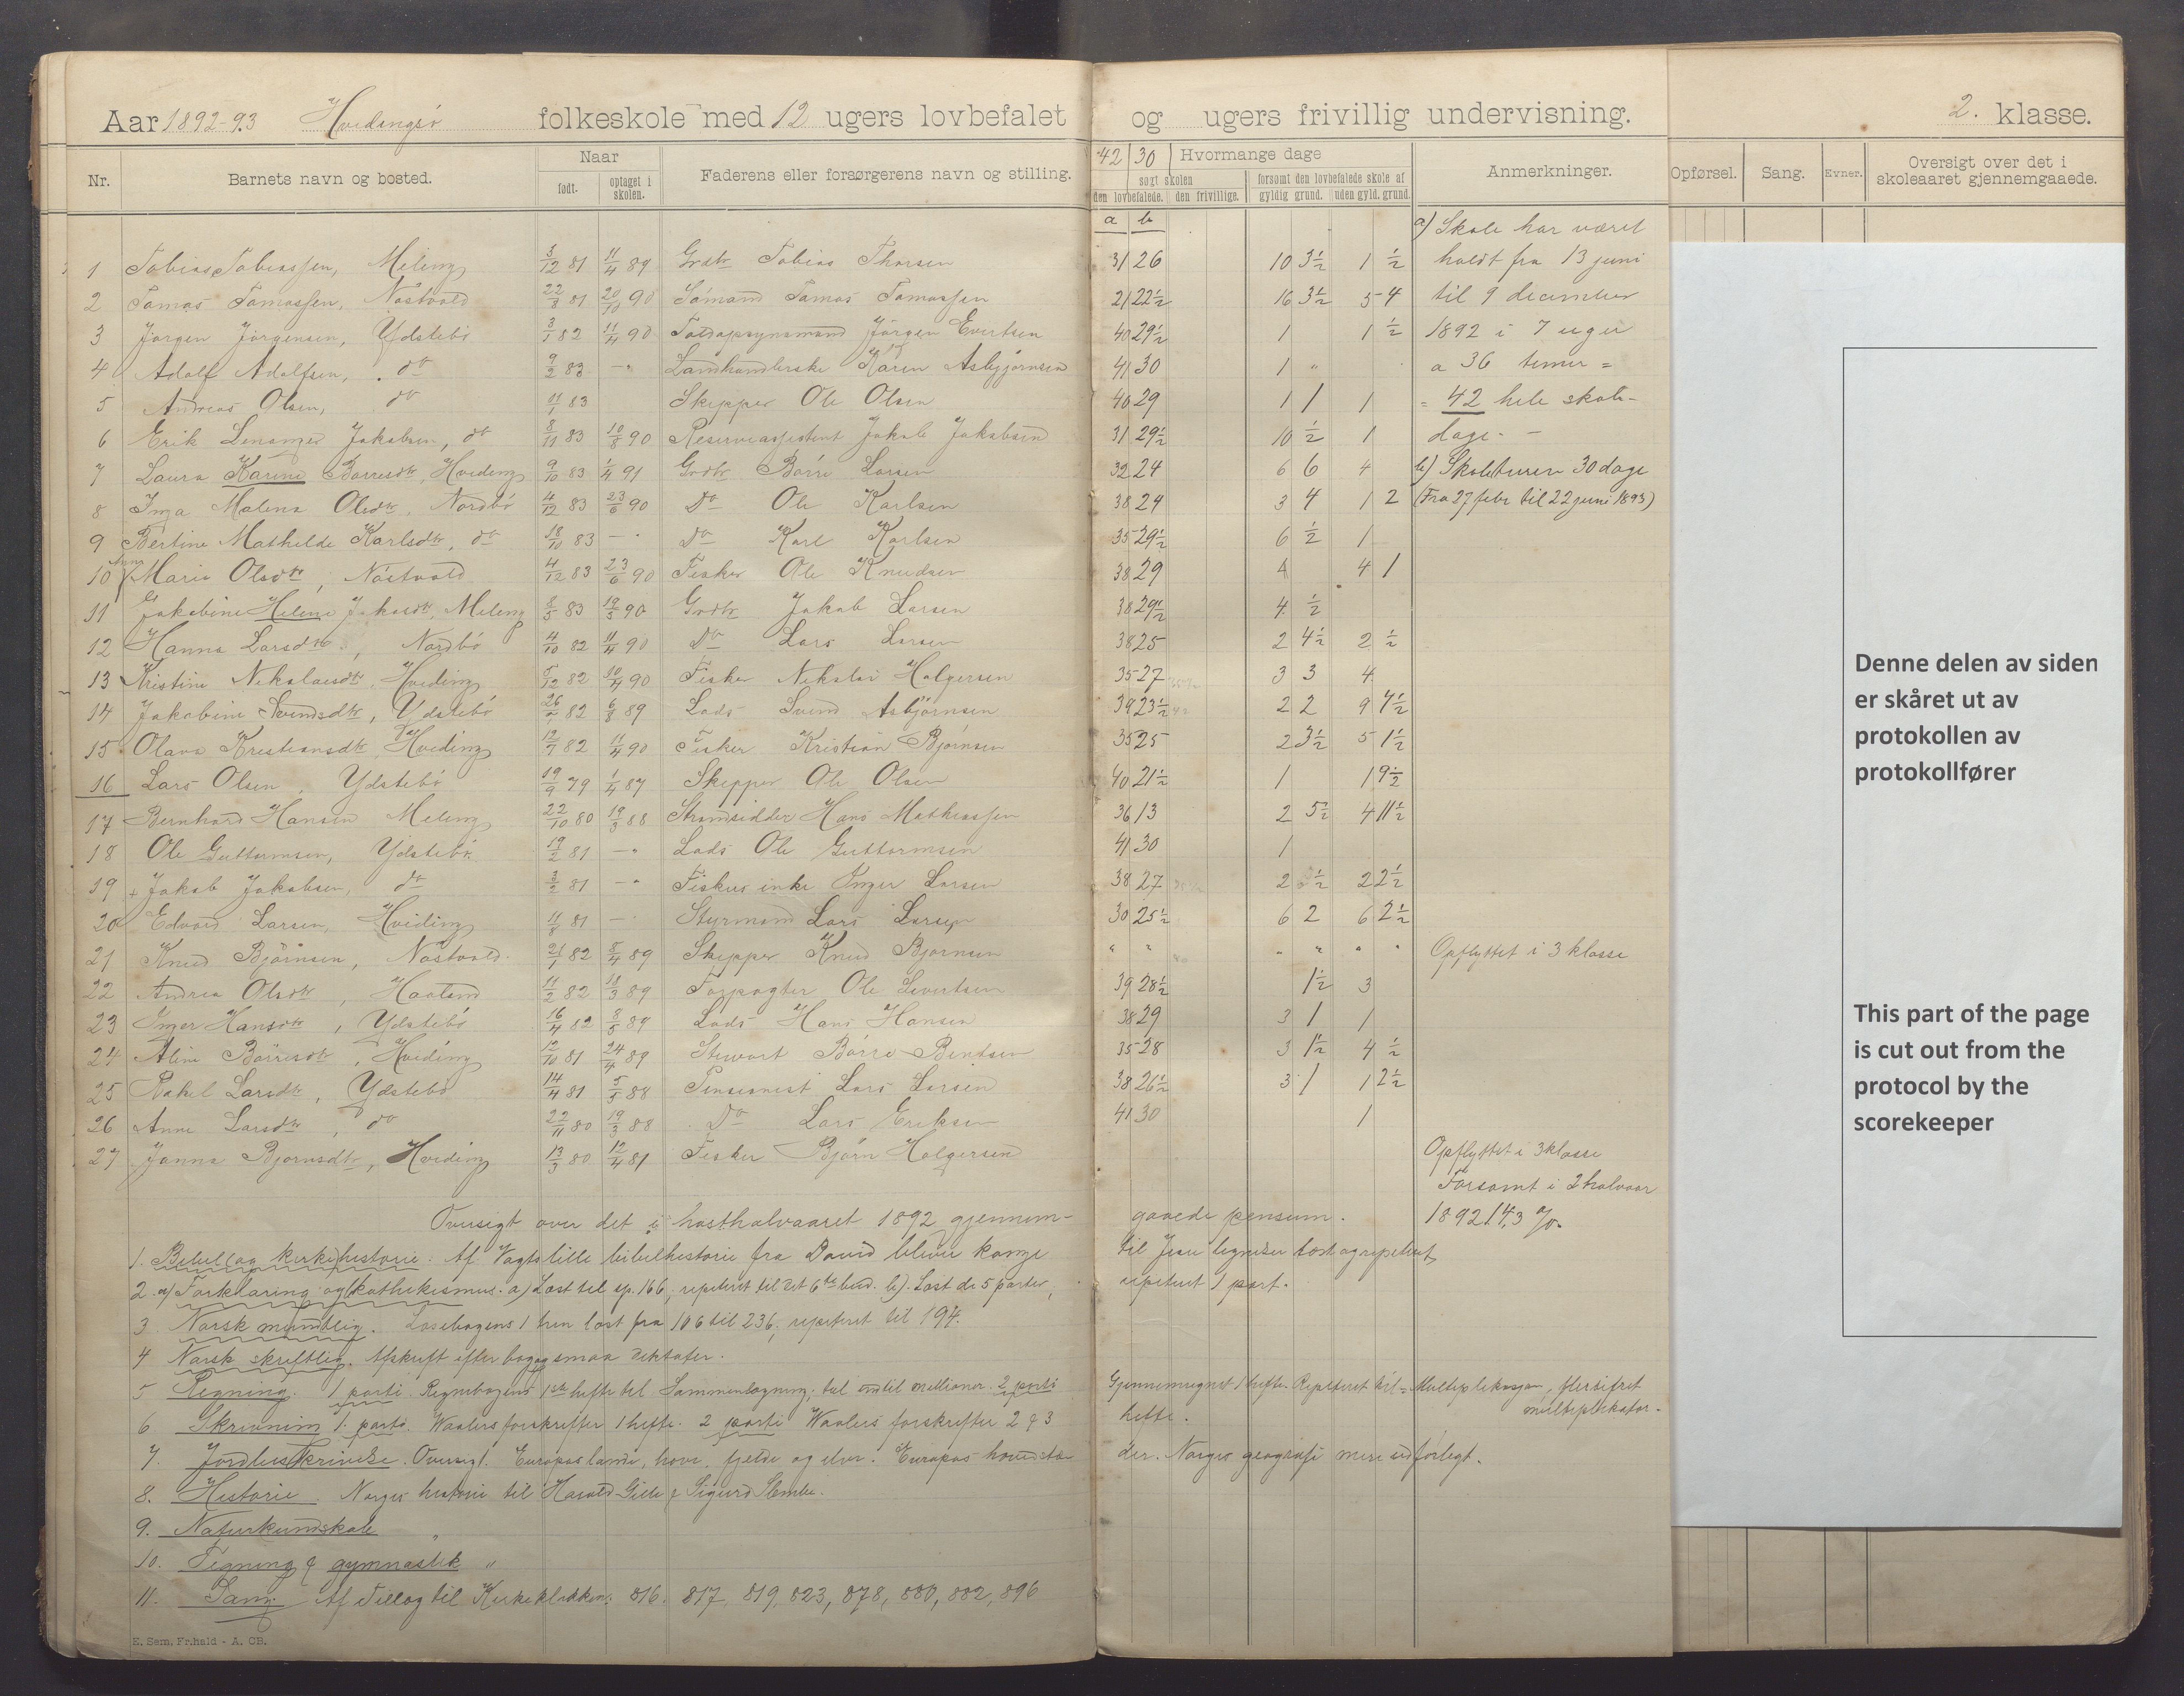 Aar 1892-93 Hvidingsö folkeskole med 12 ugers lovbefalet og ugers frivillig undervisning. 2. klasse.
Nr. Barnets navn og bosted. Naar født. optaget i skolen. Faderens eller forsørgerens navn og stilling. 42 30 Hvormange dage søgt skolen den lovbefalede. den frivillige. forsømt den lovbefalede skole af gyldig grund. uden gyld. grund. Anmerkninger. Opførsel. Sang. Evner. Oversigt over det i skoleaaret gjennemgaaede.
a b a) Skole har været
1 Tobias Tobiassen, Meling 3/12 81 11/4 89 Grdbr Tobias Thorsen 31 26 10 3½ 1 ½ holdt fra 13 juni
2 Tomas Tomassen, Nöstvold 22/8 81 20/10 90 Sömand Tomas Tomassen 21 22½ 16 3½ 5 4 til 9 december
3 Jörgen Jörgensen, Ydstebö 3/1 82 11/4 90 Toldopsynsmand Jörgen Evertsen 40 29½ 1 1 ½ 1892 i 7 uger
4 Adolf Adolfsen, do 9/2 83 — " Landhandlerske Karen Asbjörnsen 41 30 1 " a 36 timer =
5 Andreas Olsen, do 11/1 83 Skipper Ole Olsen 40 29 1 1 1 = 42 hele skole-
6 Erik Jakobsen, do 8/11 83 10/8 90 Reserveassistent Jakob Jakobsen 31 29½ 10 ½ 1 dage. —
7 Laura Karine Börresdtr, Hviding 9/10 83 1/4 91 Grdbr Börre Larsen 32 24 6 6 4 b) Skoleturen 30 dage
8 Inga Malena Olsdtr, Nordbö 4/12 83 23/6 90 Do Ole Karlsen 38 24 3 4 1 2 (Fra 27 febr til 22 juni 1893)
9 Bertine Mathilde Karlsdtr, do 18/10 83 — " Do Karl Karlsen 35 29½ 6 ½ 1
10 Anna Maria Olsdtr, Nöstvold 4/12 83 23/6 90 Fisker Ole Knudsen 38 29 4 4 1
11 Jakobine Helene Jakobsdtr, Meling 8/5 83 19/5 90 Grdbr Jakob Larsen 38 29½ 4 ½
12 Hanna Larsdtr, Nordbö 4/10 82 11/4 90 Do Lars Larsen 38 25 2 4½ 2 ½
13 Kristine Nikolaisdtr, Hviding 5/12 82 10/4 90 Fisker Nikolai Holgersen 35 27 3 3 4
14 Jakobine Svendsdtr, Ydstebö 26/1 82 6/8 89 Lods Svend Asbjörnsen 39 23½ 2 2 9 4½
15 Olava Kristiansdtr, Hviding 12/7 82 11/4 90 Fisker Kristian Björnsen 35 25 2 3½ 5 1½
16 Lars Olsen, Ydstebö 19/9 79 1/4 87 Skipper Ole Olsen 40 21½ 1 1 9½
17 Bernhard Hansen Meling 22/10 80 19/3 88 Strandsidder Hans Mathiassen 36 13 2 5½ 4 11½
18 Ole Guttormsen, Ydstebö 19/2 81 — " Lods Ole Guttormsen 41 30 1
19 Jakob Jakobsen, do 3/2 81 — " Fiskerinke Inger Larsen 38 27 2 ½ 2 2½
20 Edvard Larsen, Hviding 11/8 81 — Styrmand Lars Larsen 30 25½ 6 2 6 2½
21 Knud Björnsen, Nöstvold 21/1 82 8/4 89 Skipper Knud Björnsen " " " " " " Opflyttet i 3 klasse
22 Andrea Olsdtr, Haaland 11/2 82 18/3 89 Forpagter Ole Sivertsen 39 28½ 1½ 3
23 Inger Hansdtr, Ydstebö 16/4 82 8/5 89 Lods Hans Hansen 38 29 3 1 1
24 Aline Börresdtr, Hviding 12/10 81 24/4 89 Stuvart Börre Bentsen 35 28 3 1½ 4 ½
25 Rakel Larsdtr, Ydstebö 14/4 81 5/5 88 Pensionist Lars Larsen 38 26½ 3 1 1 2½
26 Anne Larsdtr, do 22/11 80 19/3 88 Do Lars Eriksen 41 30 1
27 Janna Bjornsdtr, Hviding 13/3 80 12/4 81 Fisker Björn Holgersen Opflyttet i 3 klasse
Forsömt i 2 halvaar
Oversigt over det i hösthalvaaret 1892 gjennem- gaaede pensum. 1892 14,3 %.
1. Bibel (og kirke) historie. Af Vogts lille bibelhistorie fra David bliver konge til Jesu lignelser læst og repeteret,
2. a) Forklaring og (kathekismus. a) Læst til sp. 166, repeteret til det 6te bud. b). Læst de 5 parter, repeteret 1 part.
3. Norsk mundtlig. Læsebogens 1 trin læst fra 106 til 236, repeteret til 194.
4 Norsk skriftlig. Afskrift efter bog og smaa diktater.
5 Regning. 1 parti. Regnebogens 1ste hefte til Sammenlægning, tal indtil millioner. 2 parti Gjennemregnet 1 hefte. Repeteret til = Multiplikasjon, flersifret multiplikator.
6 Skrivning 1. parti. Waalers forskrifter 1 hefte. 2 parti Waalers forskrifter 2 & 3 hefte.
7. Jordbeskrivelse. Oversigt. Europas lande, have, fjelde og elver. Europas hovedstæ- der. Norges geografi mere udförligt.
8. Historie. Norges historie til Harald Gille & Sigurd Slembe.
9. Naturkundskab "
10. Tegning & gymnastik "
11. Sang. Af Tillæg til Kirkeklokken: 816, 817, 819, 823, 878, 880, 882, 896
E. Sem, Fr.hald - A. CB.
Denne delen av siden
er skåret ut av
protokollen av
protokollfører
This part of the page
is cut out from the
protocol by the
scorekeeper